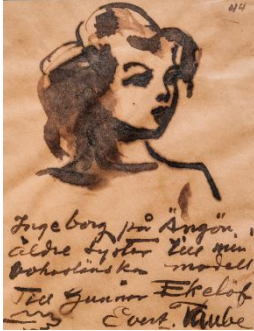 044
Ingeborg på Ängön,
äldre syster till min
bohuslänska modell
Till Gunnar Ekelöf
Evert Taube